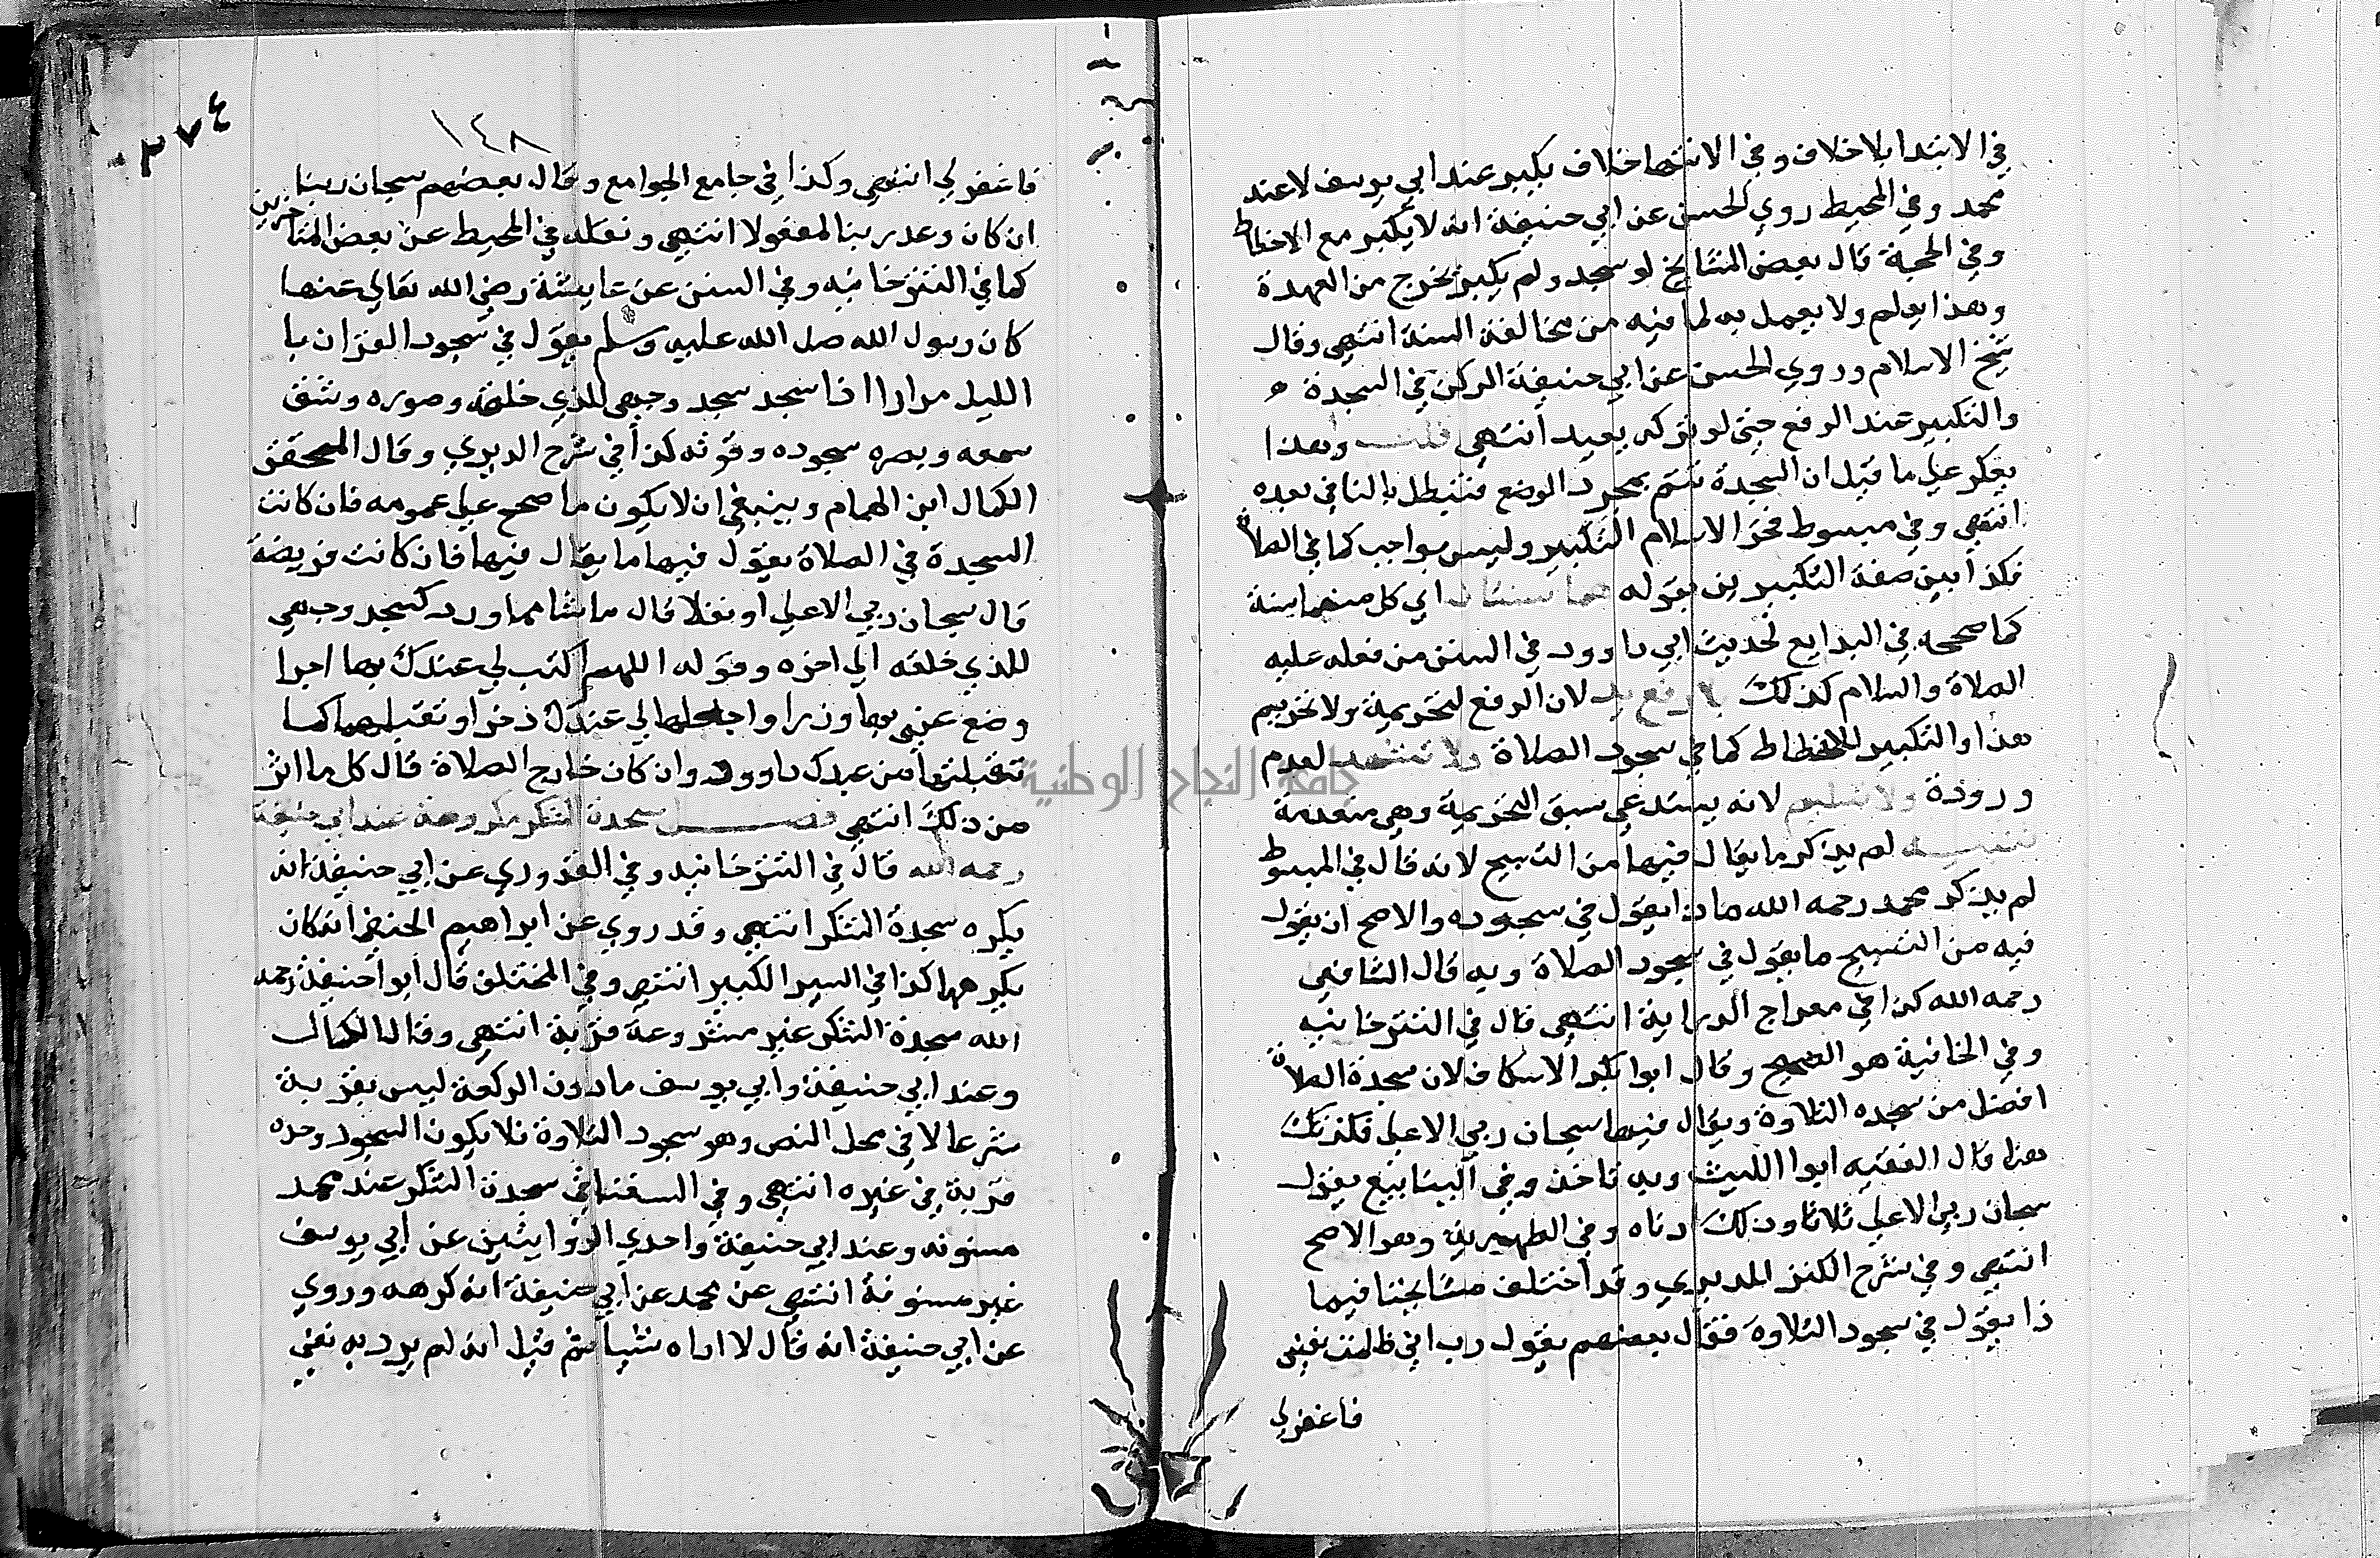 في الابتدا بلا خلاف وفي الانتها خلاف يكبر عند ابي يوسف لا عند
محمد وفي المحيط روي الحسن عن ابي حنيفة انه لا يكبر مع الانحطاط
وفي الحجة قال بعض المشايخ لو سجد ولم يكبر يخرج من العهدة
وهذا يعلم ولا يعمل به لما فيه من مخالفة السنة انتهى وقال
شيخ الاسلام وروي الحسن عن ابي حنيفة الركن في السجدة
والتكبير عند الرفع حتى لو تركه يعيد انتهى قلت وهذا
يعكر علي ما قيل ان السجدة تتم بمجرد الوضع فتبطل بالنافي بعده
انتهى وفي مبسوط فخر الاسلام التكبير وليس بواجب كما في الصلاة
فكذا بين صفة التكبيرين بقوله هما سنتان اي كل منهما سنة
كما صححه في البدايع لحديث ابي داوود في السنن من فعله عليه
الصلاة والسلام كذلك بلا رفع يد لان الرفع لتحريمة ولا تحريم
هذا والتكبير للانحطاط كما في سجود الصلاة ولا تشهد لعدم
وروده ولا تسليم لانه يستدعي سبق التحريمة وهي منعدمة
تنبيه لم يذكر ما يقال فيها من التسبيح لانه قال في المبسوط
لم يذكر محمد رحمه الله ماذا يقول في سجوده والاصح ان يقول
فيه من التسبيح ما يقول في سجود الصلاة وبه قال الشافعي
رحمه الله كذا في معراج الدراية انتهى قال في التترخانيه
وفي الخانية هو الصحيح وقال ابوا بكر الاسكاف لان سجدة الصلاة
افضل من سجده التلاوة ويقال فيها سبحان ربي الاعلي فكذلك
هذا قال الفقيه ابوا الليث وبه ناخذ وفي الينابيع يقول
سبحان ربي الاعلي ثلاثا وذلك ادناه وفي الظهيرية وهو الاصح
انتهى وفي شرح الكنز للديري وقد اختلف مشايخنا فيما
ذا يقول في سجود التلاوة فقال بعضهم يقول رب اني ظلمت نفسي
فاغفرلي
٢٧٤
١٤٨
فاغفر لي انتهى وكذا في جامع الجوامع وقال بعضهم سبحان ربنا
ان كان وعد ربنا لمفعولا انتهى ونقله في المحيط عن بعض المتاخرين
كما في التترخانيه وفي السنن عن عايشة رضي الله تعالي عنها
كان رسول الله صل الله عليه وسلم يقول في سجود القران با
الليل مرارا اذا سجد سجد وجهي للذي خلقه وصوره وشق
سمعه وبصره سجوده وقوته كذا في شرح الديري وقال المحقق
الكمال ابن الهمام وينبغي ان لا يكون ما صحح علي عمومه فان كانت
السجدة في الصلاة يقول فيها ما يقال فيها فان كانت فريضة
قال سبحان ربي الاعلي او نفلا قال ما شا مما ورد كسجد وجهي
للذي خلقه الي اخره وقوله اللهم اكتب لي عندك بها اجرا
وضع عني بها وزرا واجعلها لي عندك ذخرا وتقبلها كما
تقبلتها من عبدك داوود وان كان خارج الصلاة قال كل ما اثر
من ذلك انتهى فصل سجدة الشكر مكروهة عند ابي حنيفة
رحمه الله قال في التترخانيه وفي القدوري عن ابي حنيفة انه
يكره سجدة الشكر انتهى وقد روي عن ابراهيم النخعي انه كان
يكرهها كذا في السير الكبير انتهى وفي المختلف قال ابوا حنيفة رحمه
الله سجدة الشكر غير مشروعة قربة انتهى وقال الكمال
وعند ابي حنيفة وابي يوسف ما دون الركعة ليس بقربة
شرعا الا في محل النص وهو سجود التلاوة فلا يكون السجود وحده
قربة في غيره انتهى وفي السغناقي سجدة الشكر عند محمد
مسنونه وعند ابي حنيفة واحدي الروايتين عن ابي يوسف
غير مسنونة انتهى عن محمد عن ابي حنيفة انه كرهه وروي
عن ابي حنيفة انه قال لا اراه شيا ثم قيل انه لم يرد به نفي
جامعة النجاح الوطنية